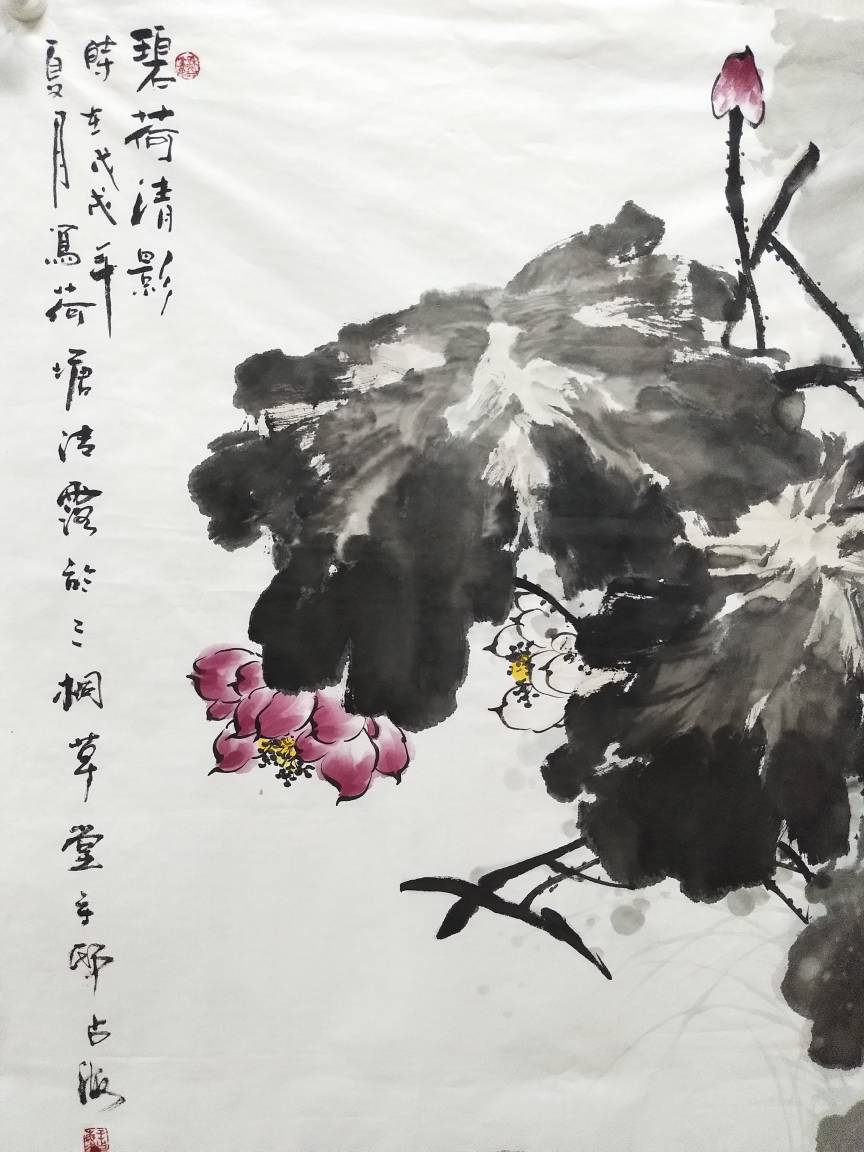 碧荷清影
時在戊戌年
夏月寫荷塘清露於二桐草堂主邢占海